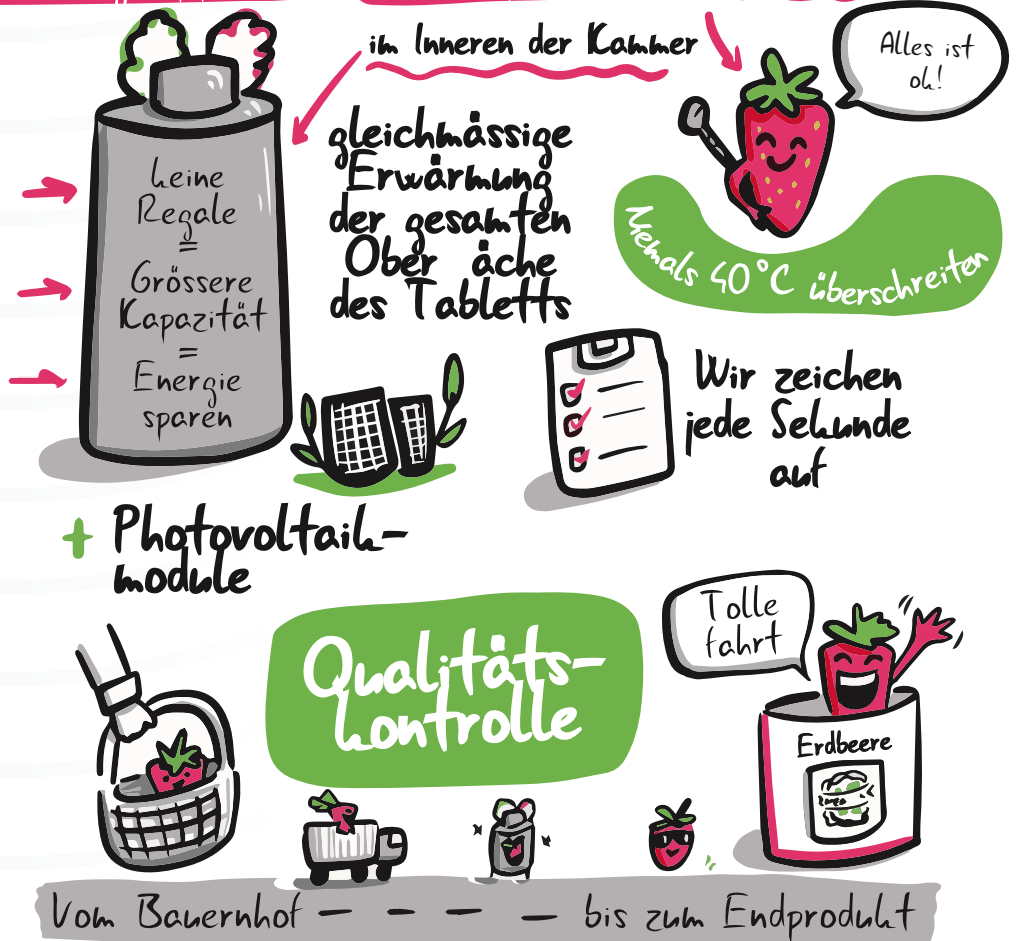 im Inneren der Kammer
Alles ist
ok!
keine
Regale
=
Grössere
Kapazität
=
Energie
sparen
gleichmässige
Erwärmung
der gesamten
Ober äche
des Tabletts
Niemals 40°C überschreiten
Wir zeichen
jede Sekunde
auf
+ Photovoltaik-
module
Qualitäts-
kontrolle
Tolle
fahrt
Erdbeere
Vom Bauernhof — — — — bis zum Endprodukt